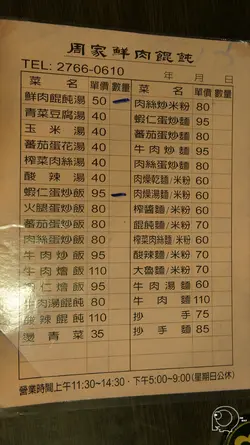 周家鮮肉餛飩
TEL: 2766-0610 年 月 日
菜名 單價 數量 菜名 單價 數量
鮮肉餛飩湯 50 肉絲炒米粉 80
青菜豆腐湯 40 蝦仁蛋炒麵 95
玉米湯 40 蕃茄蛋炒麵 80
蕃茄蛋花湯 40 牛肉炒麵 95
榨菜肉絲湯 40 肉燥乾麵/米粉
酸辣湯 40 肉燥湯麵/米粉
蝦仁蛋炒飯 95 榨醬麵/米粉 60
火腿蛋炒飯 80 餛飩麵/米粉 70
蕃茄蛋炒飯 80 榨菜肉絲麵/米粉 60
肉絲蛋炒飯 80 酸辣麵/米粉 60
牛肉炒飯 95 大魯麵/米粉 70
牛肉燴飯 110 牛肉湯麵 60
蝦仁燴飯 牛肉麵 110
牛肉湯餛飩 80 抄手 75
酸辣餛飩 110 抄手麵 85
燙青菜 35
營業時間上午11:30~14:30、下午5:00~9:00(星期日公休)